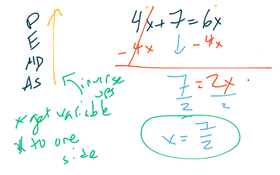 P
E
MD
AS
inverse
ops
* get variable
* to one
side
4x + 7 = 6x
- 4x ↓ - 4x
7 = 2x
2 2
x = 7/2